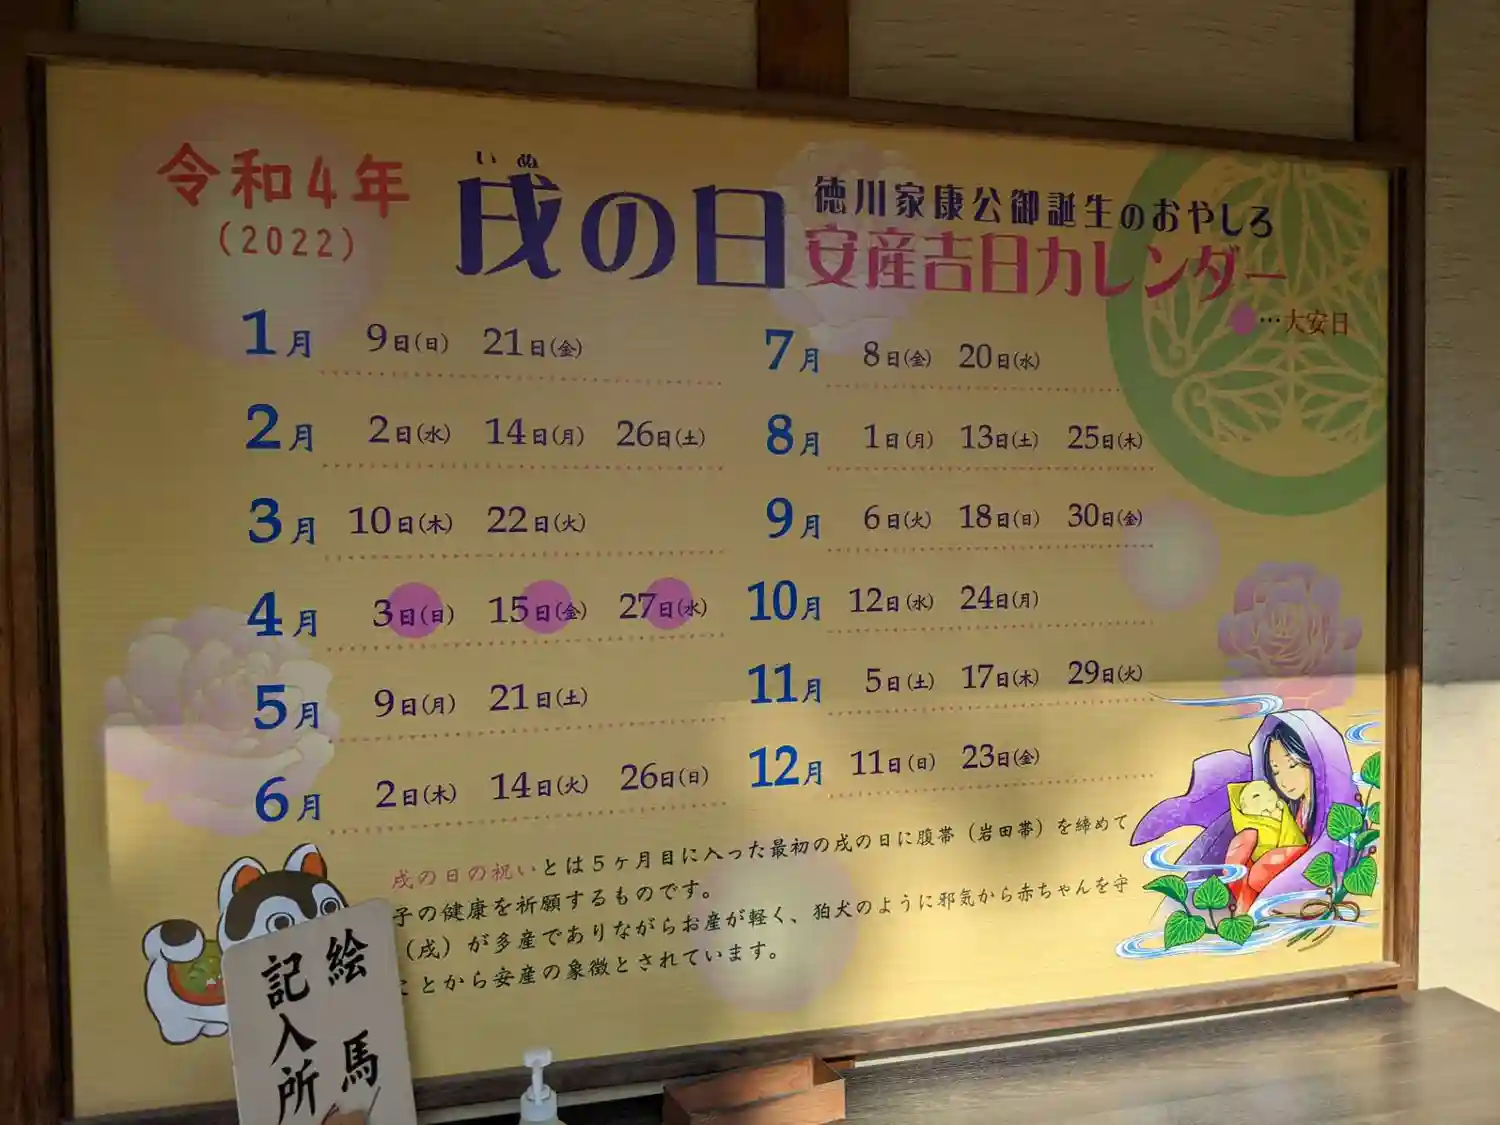 令和4年
(2022)
いぬ
戌の日
徳川家康公御誕生のおやしろ
安産吉日カレンダー
…大安日
1月 9日(日) 21日(金)
2月 2日(水) 14日(月) 26日(土)
3月 10日(木) 22日(火)
4月 3日(日) 15日(金) 27日(水)
5月 9日(月) 21日(土)
6月 2日(木) 14日(火) 26日(日)
7月 8日(金) 20日(水)
8月 1日(月) 13日(土) 25日(木)
9月 6日(火) 18日(日) 30日(金)
10月 12日(水) 24日(月)
11月 5日(土) 17日(木) 29日(火)
12月 11日(日) 23日(金)
戌の日の祝いとは５ヶ月目に入った最初の戌の日に腹帯（岩田帯）を締めて
子の健康を祈願するものです。
（戌）が多産でありながらお産が軽く、狛犬のように邪気から赤ちゃんを守
とから安産の象徴とされています。
絵馬
記入所